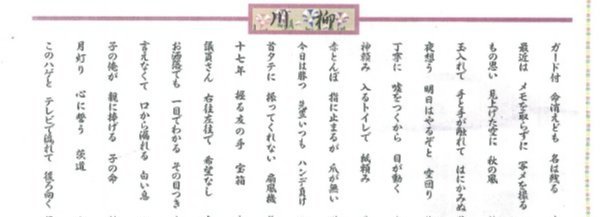 川柳
ガード付 命消えども 名は残る
最近は メモを取らずに 写メを撮る
もの思い 見上げた空に 秋の風
玉入れて 手と手が触れて はにかみぬ
夜想う 明日はやるぞと 空回り
丁寧に 嘘をつくから 目が動く
神頼み 入るトイレで 紙頼み
赤とんぼ 指に止まるが 爪が無い
今日は勝つ いつも ハンデ負け
首タテに 振ってくれない 扇風機
十七年 握る友の手 宝箱
議員さん 右往左往で 希望なし
お洒落でも 一目でわかる その目つき
言えなくて 口から溢れる 白い息
子の俺が 親に捧げる 子の命
月灯り 心に誓う 茨道
このハゲと テレビで流れて 後ろ向く